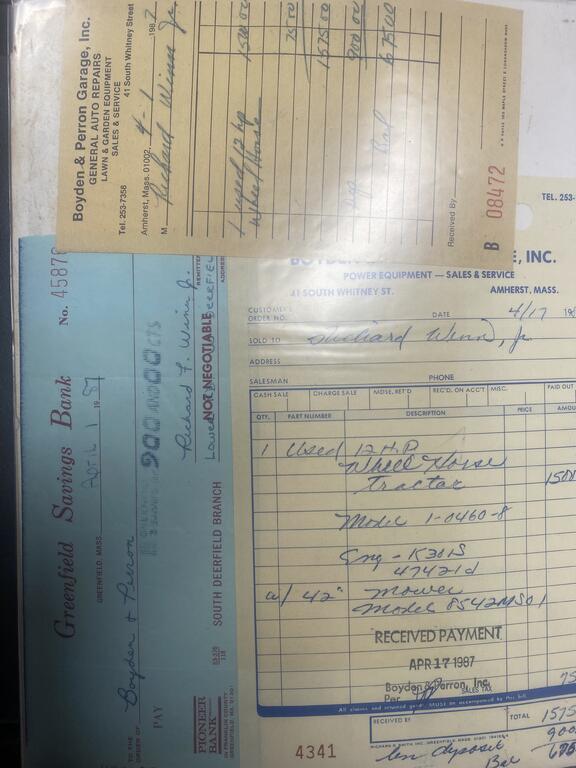 Boyden & Perron Garage, Inc.
GENERAL AUTO REPAIRS
LAWN & GARDEN EQUIPMENT
SALES & SERVICE
Tel. 253-7358 41 South Whitney Street
Amherst, Mass. 01002 4-1 1987
M Richard Winn Jr.
1 used 12 hp 1500 00
Wheel Horse
75 00
1575 00
900 00
Bal 675 00
Received By
B 08472
Greenfield Savings Bank No. 45876
GREENFIELD, MASS. April 1 1987
TO THE ORDER OF Boyden & Perron
PAY 900 AND 00 CTS
Richard F. Winn Jr.
REMITTER
NOT NEGOTIABLE
ADDRESS
SOUTH DEERFIELD BRANCH
PIONEER BANK
53-279
118
TEL. 253-
BOYDEN E, INC.
POWER EQUIPMENT — SALES & SERVICE
41 SOUTH WHITNEY ST. AMHERST, MASS.
CUSTOMER'S ORDER NO. DATE 4/17 198
SOLD TO Richard Winn, Jr
ADDRESS
SALESMAN PHONE
CASH SALE CHARGE SALE MDSE. RET'D REC'D. ON ACC'T MISC. PAID OUT
QTY. PART NUMBER DESCRIPTION PRICE AMOU
1 Used 12 H.P.
Wheel Horse
Tractor 1500
Model 1-0460-8
Eng - K301S
47421d
w/ 42" Mower
Model 8542MS01
RECEIVED PAYMENT
APR 17 1987
Boyden & Perron, Inc.
Per
SALES TAX 75
All claims and returned goods MUST be accompanied by this bill.
RECEIVED BY TOTAL 1575
4341 deposit 900
Bal 675